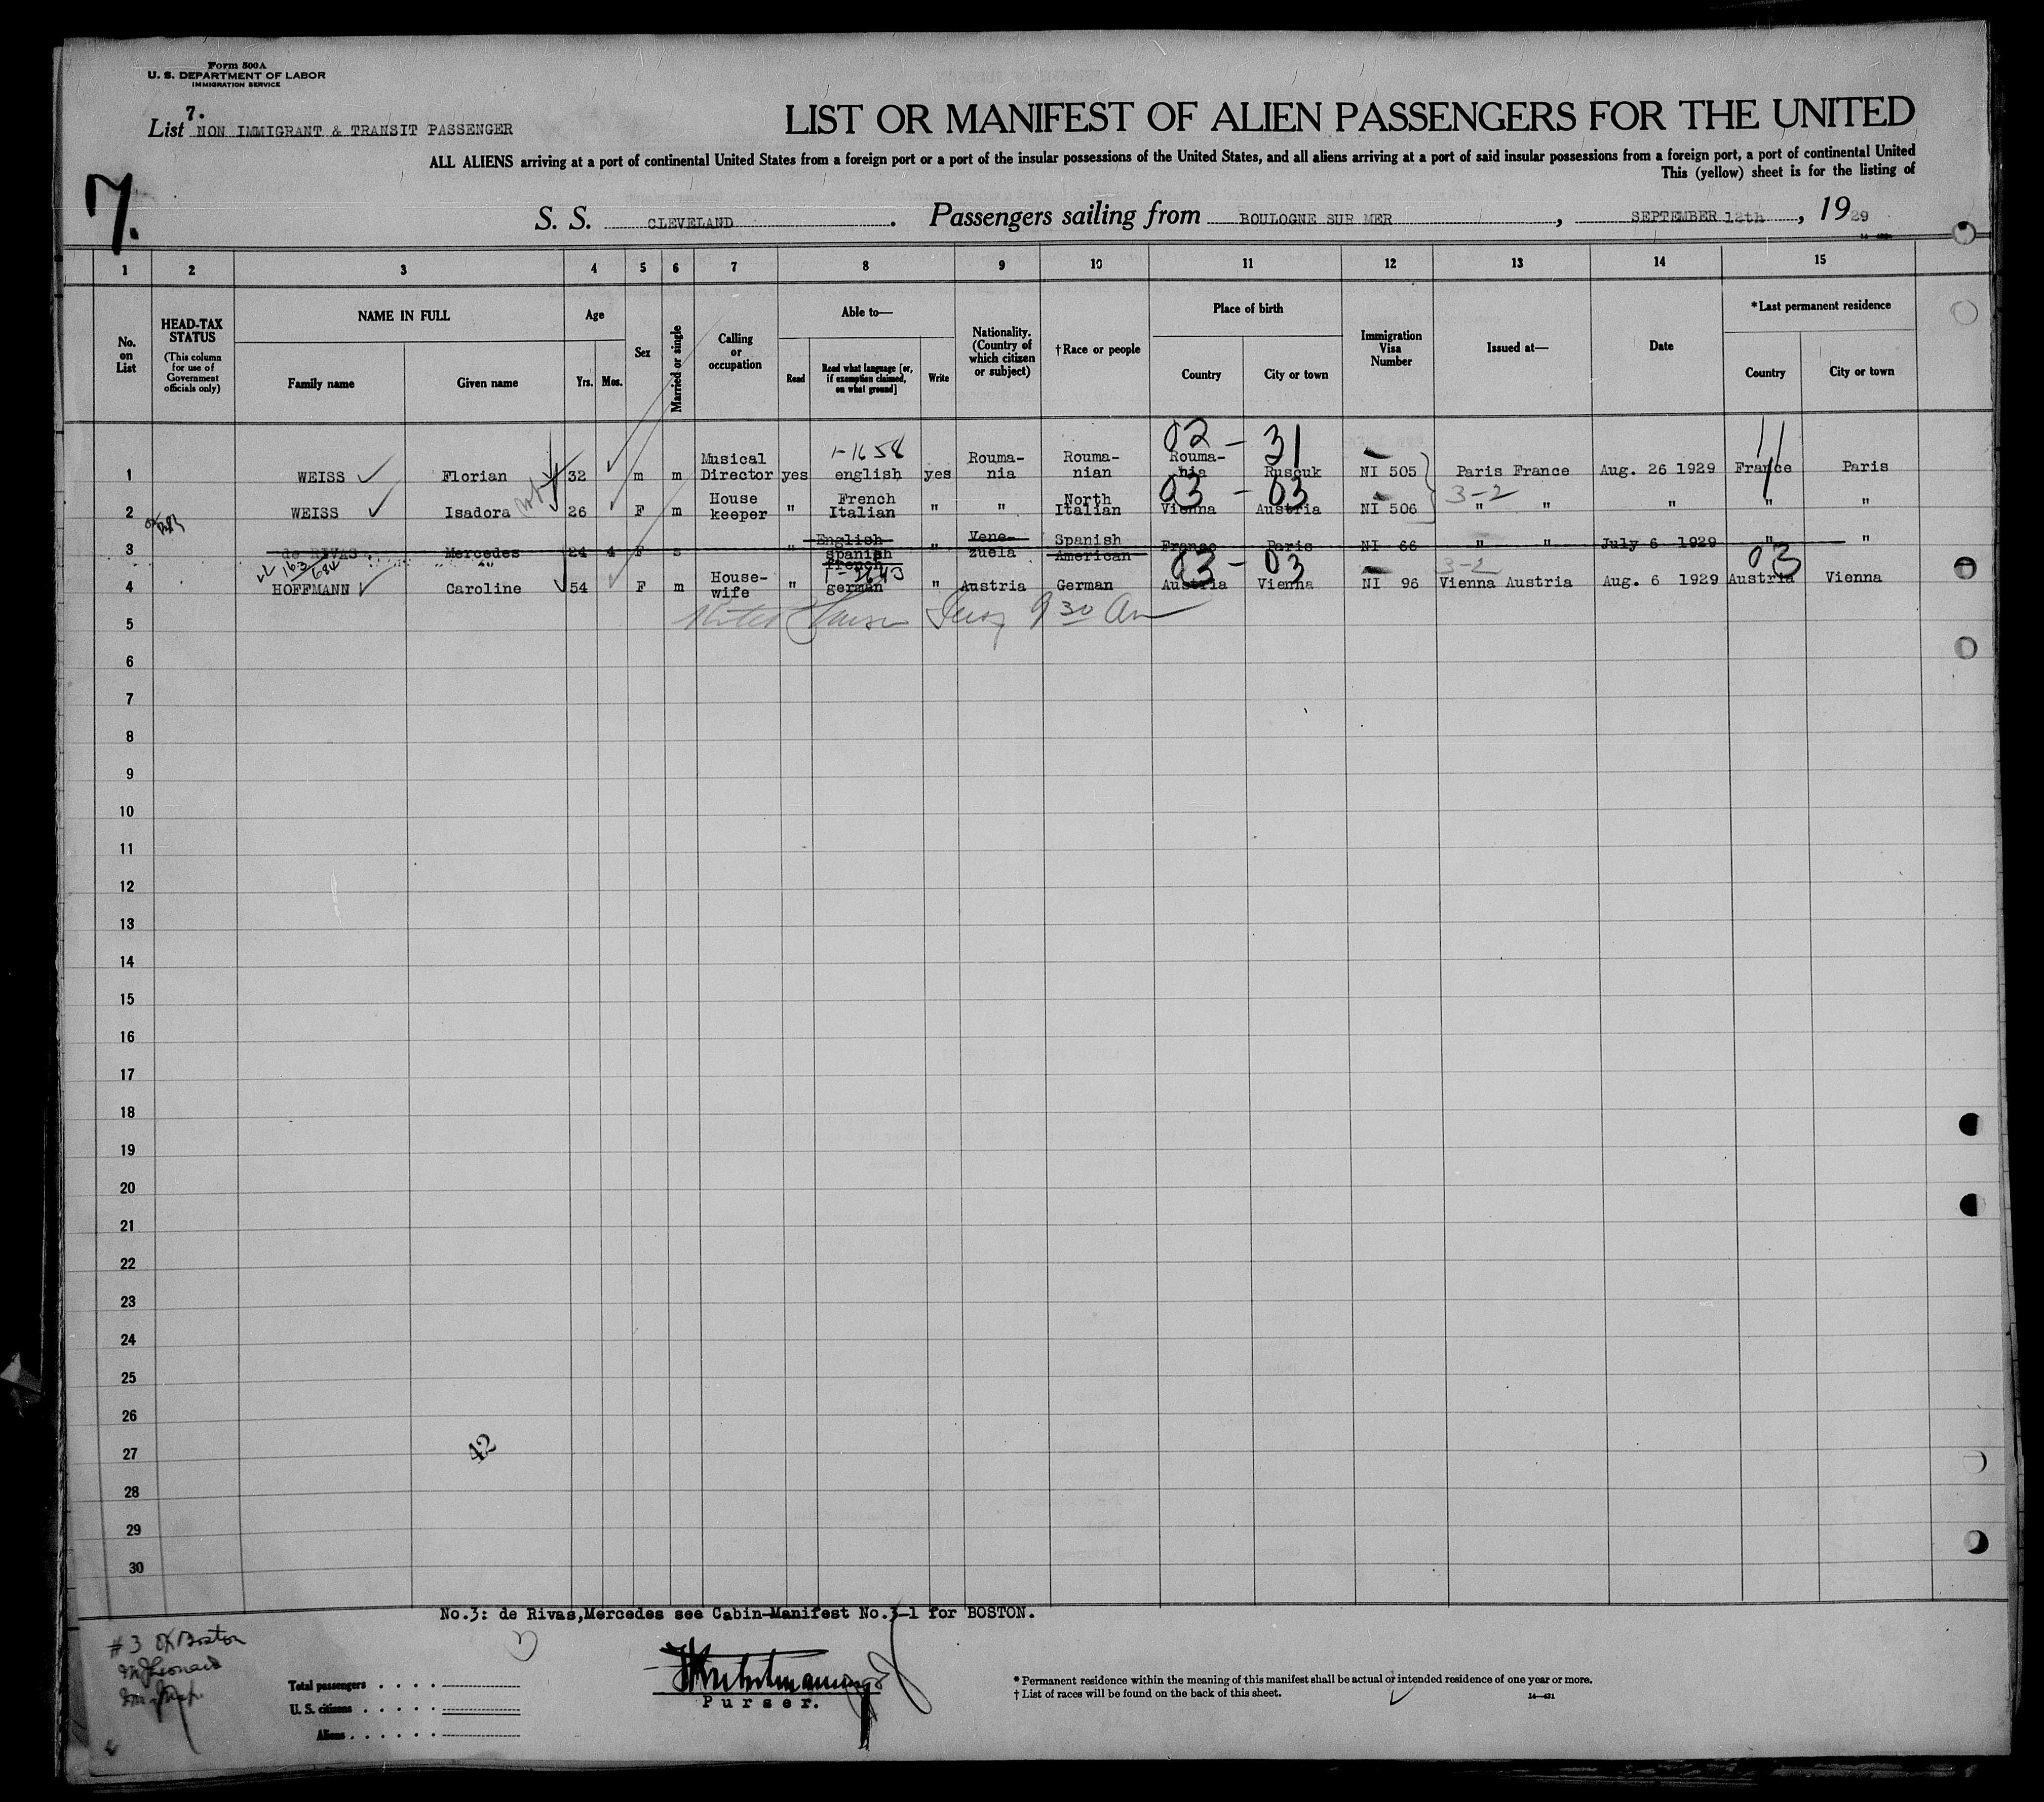 Form 500A
U. S. DEPARTMENT OF LABOR
IMMIGRATION SERVICE
7.
List NON IMMIGRANT & TRANSIT PASSENGER
LIST OR MANIFEST OF ALIEN PASSENGERS FOR THE UNITED
ALL ALIENS arriving at a port of continental United States from a foreign port or a port of the insular possessions of the United States, and all aliens arriving at a port of said insular possessions from a foreign port, a port of continental United
This (yellow) sheet is for the listing of
7.
S. S. CLEVELAND. Passengers sailing from BOULOGNE SUR MER, SEPTEMBER 12th, 1929
1 2 3 4 5 6 7 8 9 10 11 12 13 14 15
No. on List
HEAD-TAX STATUS
(This column for use of Government officials only)
NAME IN FULL
Family name Given name
Age
Yrs. Mos.
Sex
Married or single
Calling or occupation
Able to—
Read
Read what language [or, if exemption claimed, on what ground]
Write
Nationality. (Country of which citizen or subject)
†Race or people
Place of birth
Country City or town
Immigration Visa Number
Issued at—
Date
*Last permanent residence
Country City or town
02 - 31 11
1-1658
1 WEISS Florian 32 m m Musical Director yes english yes Rouma-nia Rouma-nian Rouma-nia Rusçuk NI 505 Paris France Aug. 26 1929 France Paris
03 - 03 3-2
2 WEISS Isadora 26 F m House keeper " French Italian " " North Italian Vienna Austria NI 506 " " " " "
3 de RIVAS Mercedes 24 4 F s " English spanish french " Vene-zuela Spanish American France Paris NI 66 " " July 6 1929 " "
163 684 03 - 03 3-2 03
4 HOFFMANN Caroline 54 F m House-wife " german " Austria German Austria Vienna NI 96 Vienna Austria Aug. 6 1929 Austria Vienna
5 9 30 Am
6
7
8
9
10
11
12
13
14
15
16
17
18
19
20
21
22
23
24
25
26
27
42
28
29
30
No.3: de Rivas,Mercedes see Cabin-Manifest No.3-1 for BOSTON.
#3 OK Boston
Total passengers . . . .
U. S. citizens . . . . .
Aliens . . . . . .
Purser.
* Permanent residence within the meaning of this manifest shall be actual or intended residence of one year or more.
† List of races will be found on the back of this sheet.
14—431